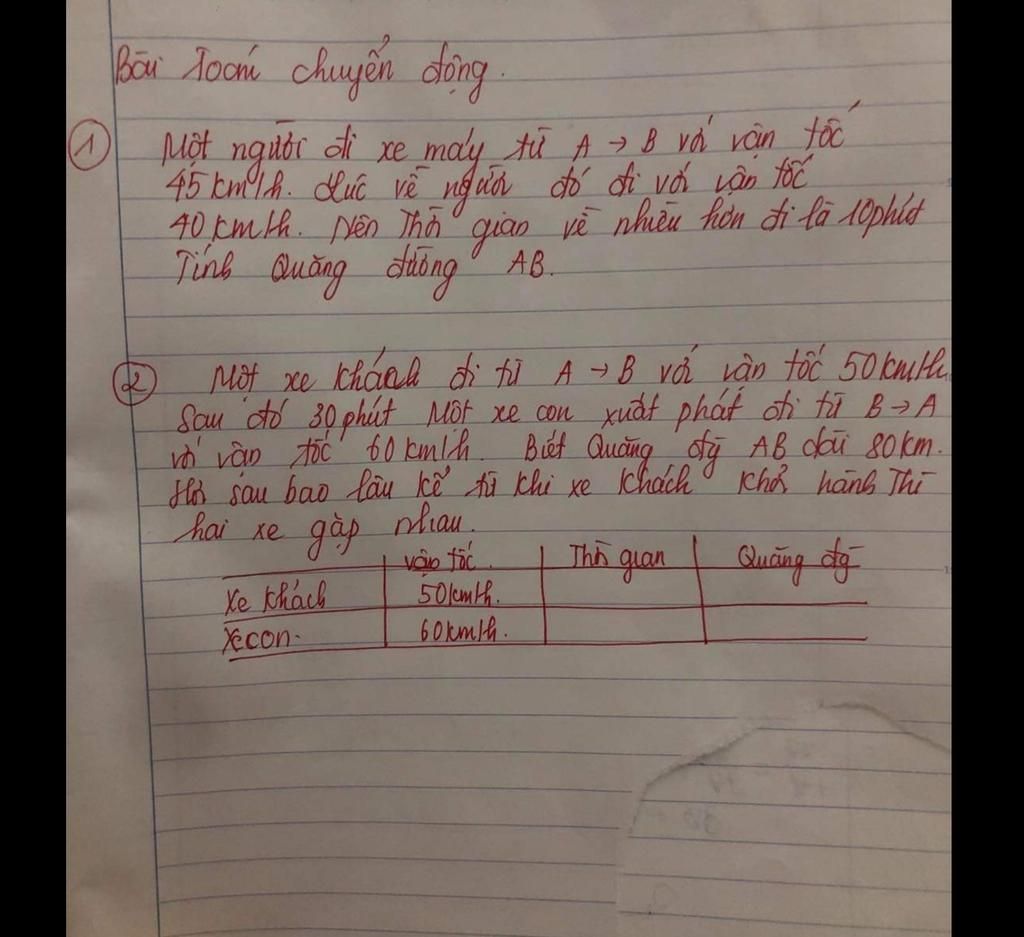 Bài Toán chuyển động.
① Một người đi xe máy từ A → B với vận tốc
45km/h. Lúc về người đó đi với vận tốc
40km/h. Nên Thời gian về nhiều hơn đi là 10phút
Tính Quãng đường AB.
② Một xe khách đi từ A → B với vận tốc 50km/h
Sau đó 30phút Một xe con xuất phát đi từ B → A
với vận tốc 60km/h. Biết Quãng đg AB dài 80km.
Hỏi sau bao lâu kể từ khi xe khách khởi hành Thì
hai xe gặp nhau.
vận tốc. Thời gian Quãng đg
Xe khách 50km/h.
Xe con. 60km/h.